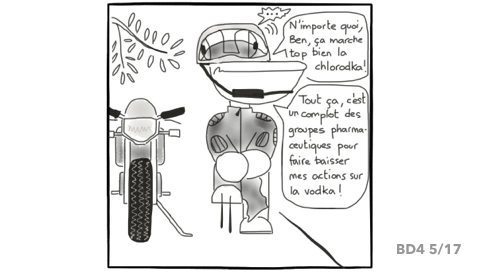 ...
N'importe quoi,
Ben, ça marche
top bien la
chlorodka!
Tout ça, c'est
un complot des
groupes pharma-
ceutiques pour
faire baisser
mes actions sur
la vodka!
MAWI
BD4 5/17